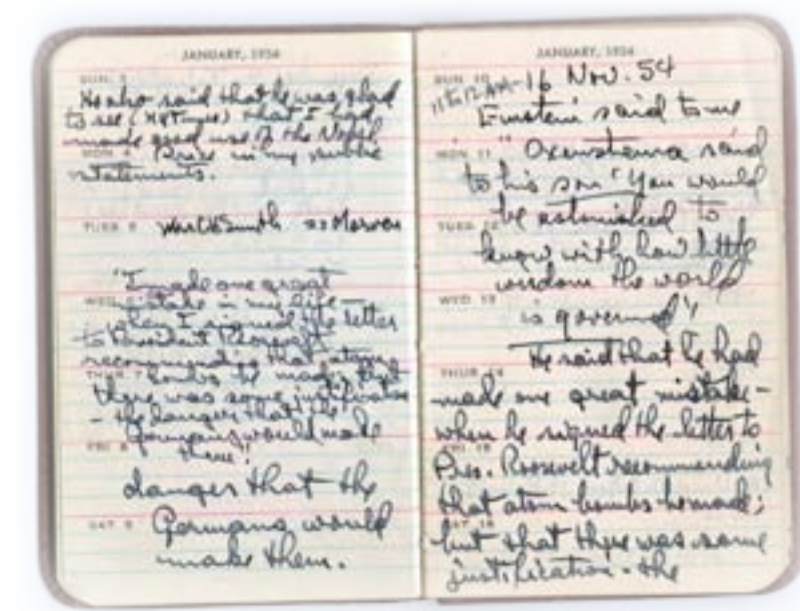 JANUARY, 1954
SUN. 3
He also said that he was glad
to see (NYTimes) that I had
made good use of the Nobel
MON. 4
Prize in my public
statements.
TUES. 5
"I made one great
WED. 6
mistake in my life—
when I signed the letter
to President Roosevelt
recommending that atom
THUR. 7
bombs be made; but
there was some justification
— the danger that the
Germans would make
FRI. 8
them!"
danger that the
SAT. 9
Germans would
make them.
JANUARY, 1954
SUN. 10
11 to 12 AM - 16 Nov. 54
Einstein said to me
MON. 11
"Oxenstierna said
to his son "You would
be astonished to
TUES. 12
know with how little
wisdom the world
WED. 13
is governed"!
He said that he had
THUR. 14
made one great mistake -
when he signed the letter to
FRI. 15
Pres. Roosevelt recommending
that atom bombs be made;
SAT. 16
but that there was some
justification - the